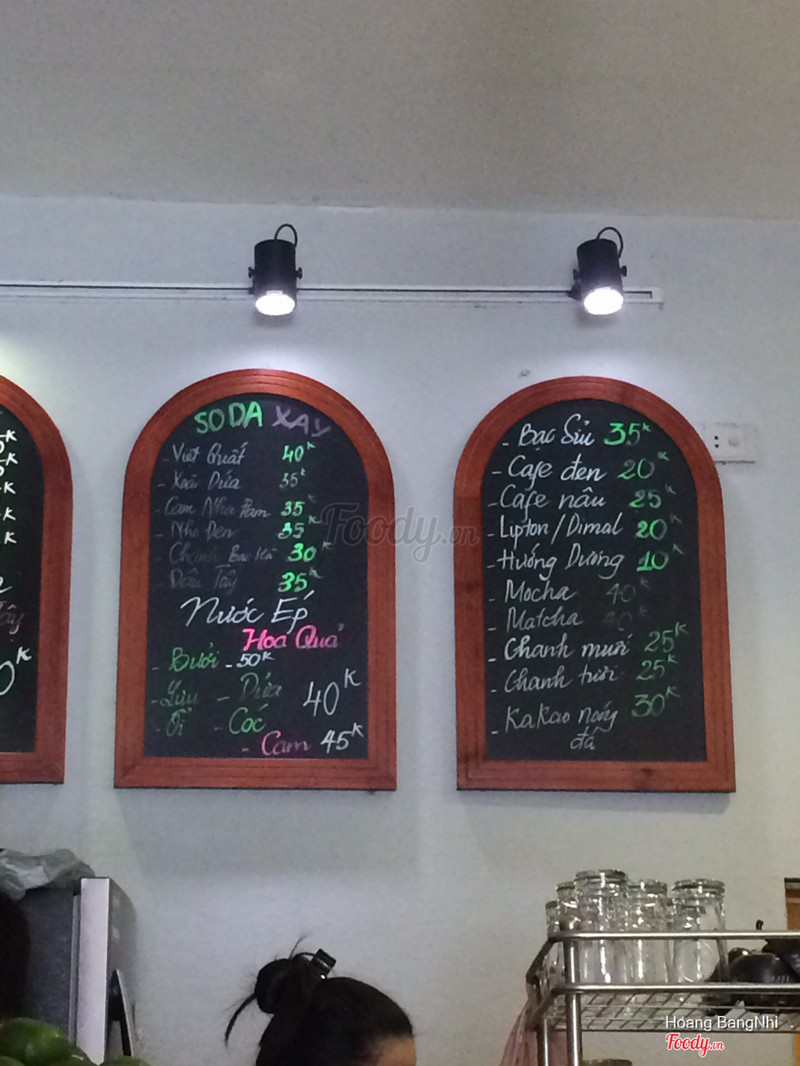 SODA XAY
- Việt Quất 40K
- Xoài Dừa 35K
- Cam Nha Đam 35K
- Nho Đen 35K
- Chanh Bạc Hà 30K
- Dâu Tây 35K
Nước Ép
Hoa Quả
- Bưởi - 50K
- Lựu - Dứa 40K
- Ổi - Cóc
- Cam 45K
- Bạc Sỉu 35K
- Cafe đen 20K
- Cafe nâu 25K
- Lipton/Dimal 20K
- Hướng Dương 10K
- Mocha 40K
- Matcha 40K
- Chanh muối 25K
- Chanh tươi 25K
- Kakao nóng 30K
đá
Foody.vn
Hoang BangNhi
Foody.vn